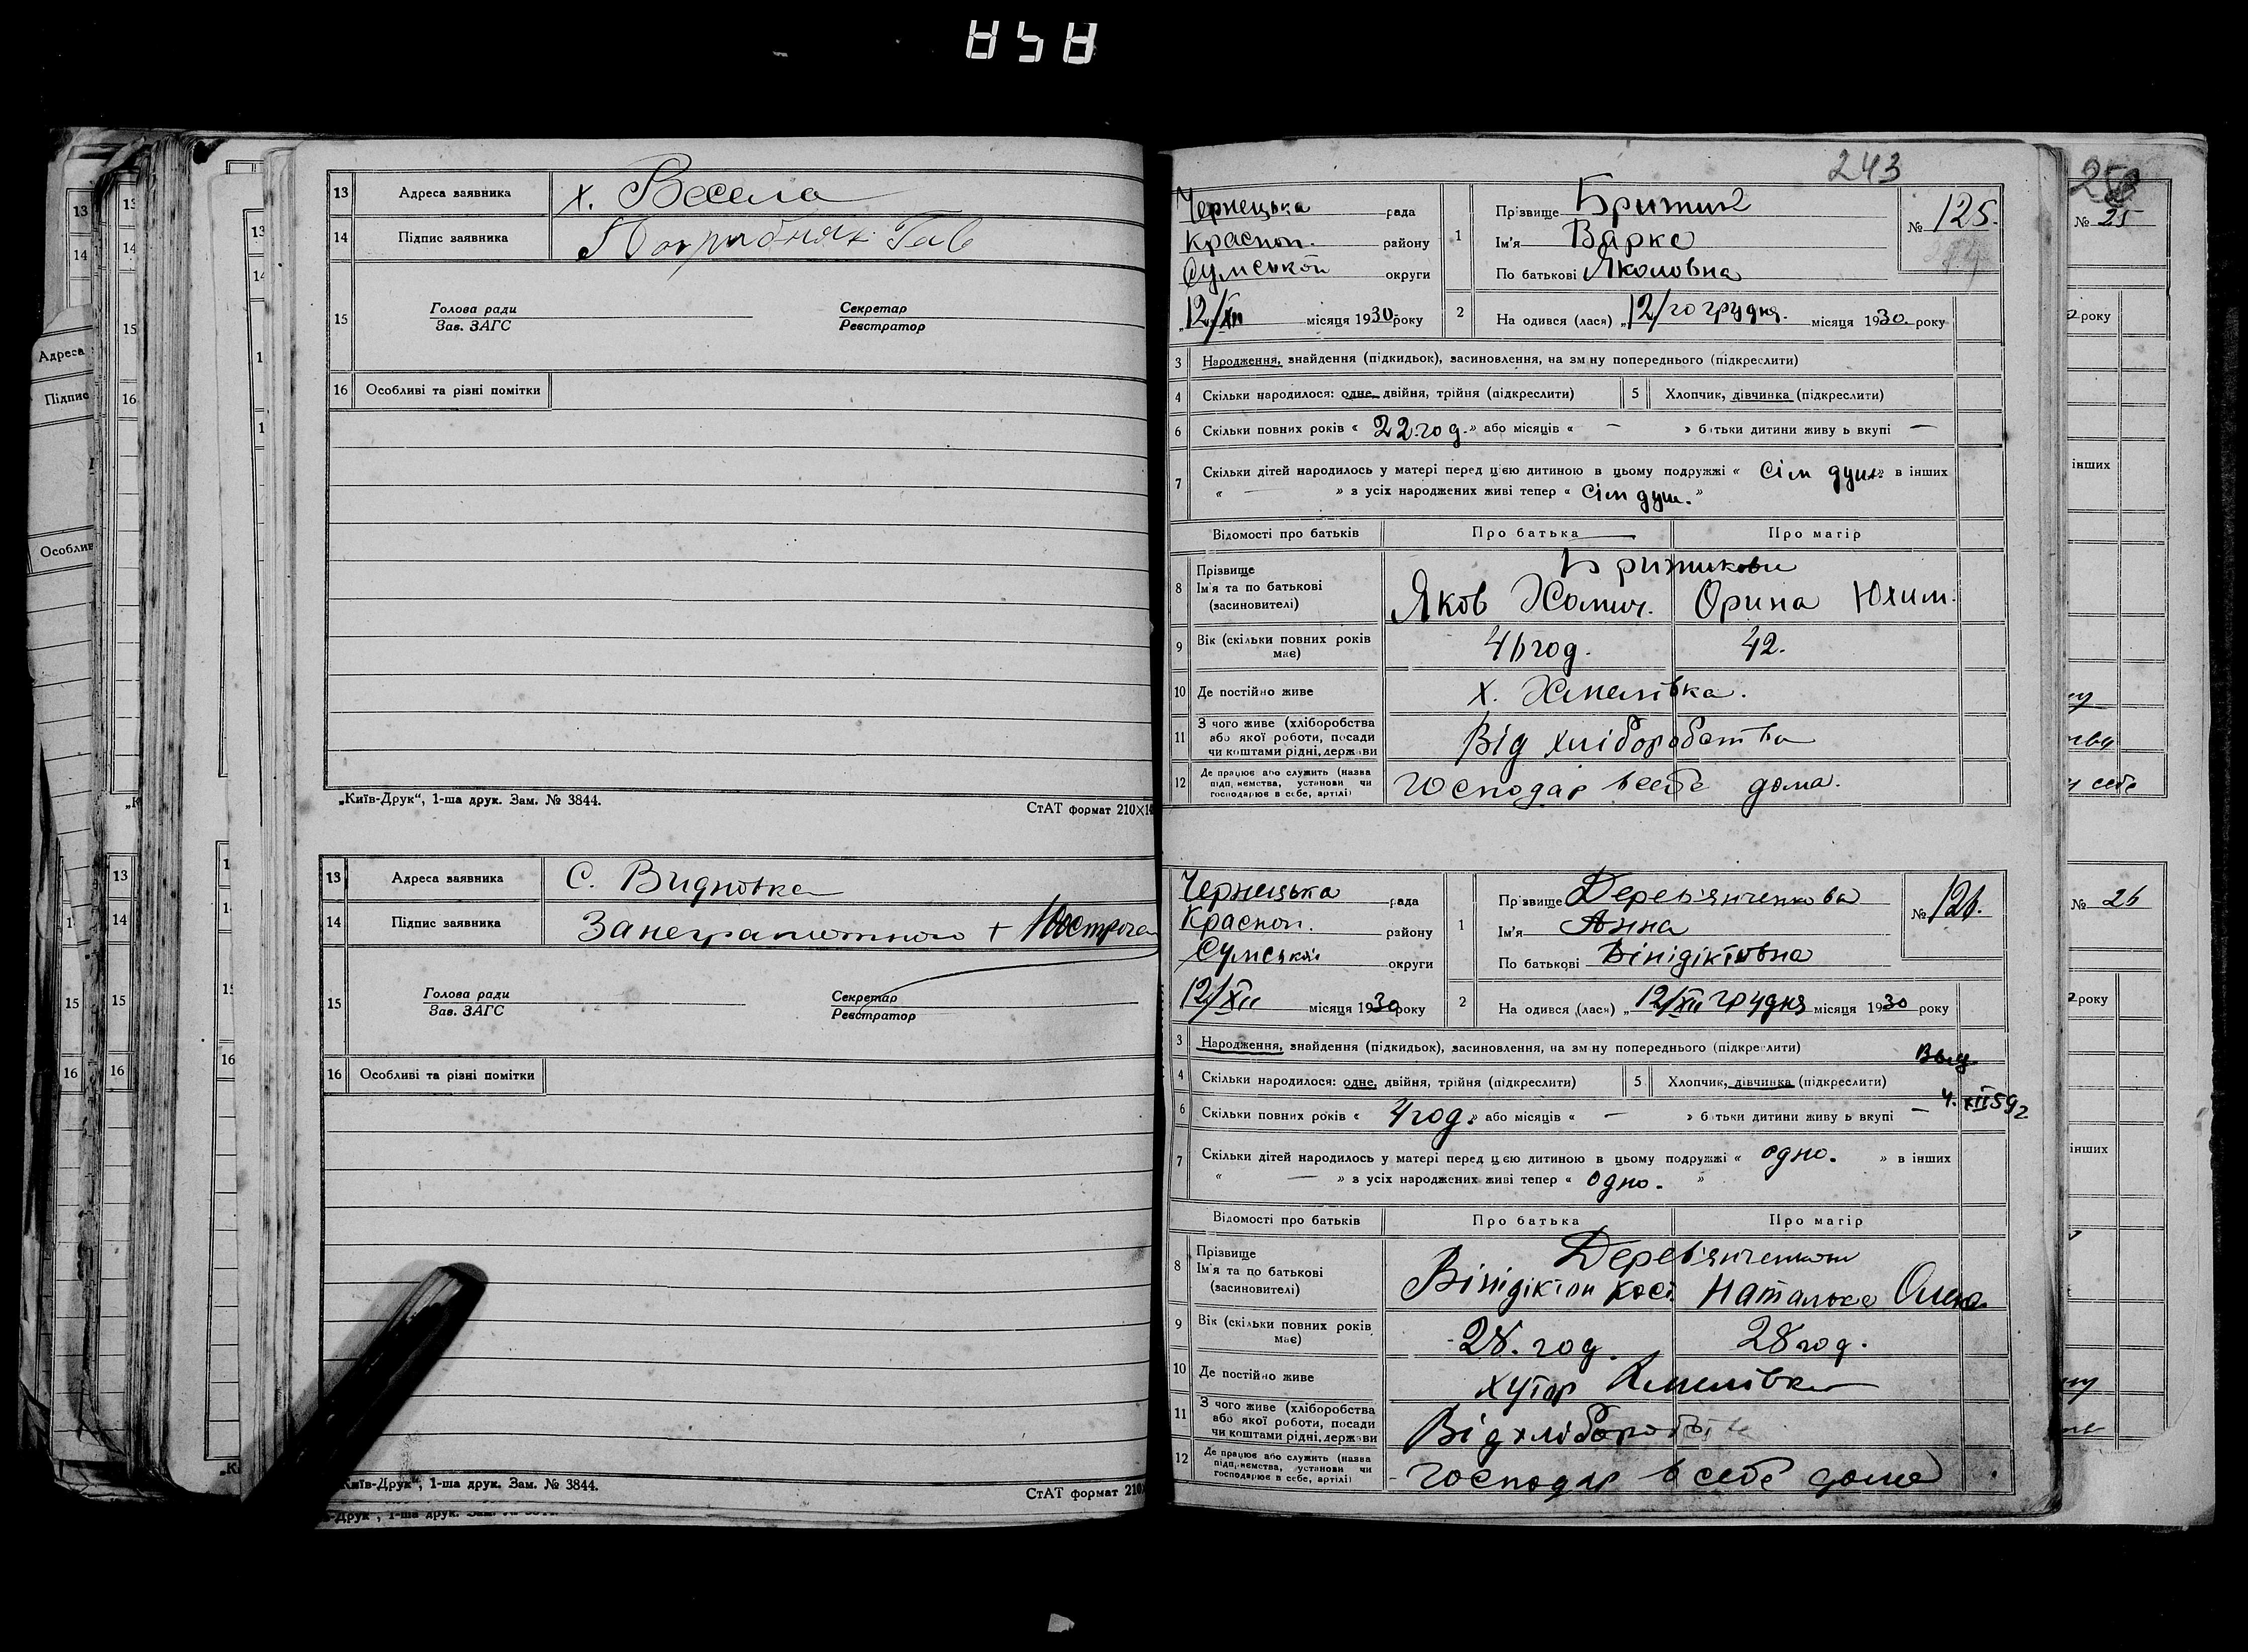 858
13 Адреса заявника х. Весела
14 Підпис заявника
15 Голова ради Секретар
Зав. ЗАГС Реєстратор
16 Особливі та різні помітки
„Київ-Друк“, 1-ша друк. Зам. № 3844. СтАТ формат 210×14
13 Адреса заявника С. Видновка
14 Підпис заявника За неграмотного +
15 Голова ради Секретар
Зав. ЗАГС Реєстратор
16 Особливі та різні помітки
Київ-Друк“, 1-ша друк. Зам. № 3844. СтАТ формат 210
243
Чернецька рада
Краспоп. району
Сумської округи
12/XII місяця 1930 року
1 Прізвище Брижик
Ім'я Варка
По батькові Яковловна
№ 125.
2 На одився (лася) „12/го грудня. місяця 1930. року
3 Народження, знайдення (підкидьок), засиновлення, на зм ну попереднього (підкреслити)
4 Скільки народилося: одне, двійня, трійня (підкреслити) 5 Хлопчик, дівчинка (підкреслити)
6 Скільки повних років « 22 год. » або місяців « — » б тьки дитини живу ь вкупі —
7 Скільки дітей народилось у матері перед цією дитиною в цьому подружжі « сім душ » в інших
« — » з усіх народжених живі тепер « сім душ. »
Відомості про батьків Про батька Про матір
8 Прізвище
Ім'я та по батькові
(засновителі)
Брижикови
Яков Хомич. Орина Юхим.
9 Вік (скільки повних років має) 46 год. 42.
10 Де постійно живе х. Хмелівка.
11 З чого живе (хліборобства
або якої роботи, посади
чи коштами рідні, держави
Від хліборобства
12 Де працює або служить (назва
підприємства, установи чи
господарює в себе, артілі)
Господар в себе дома.
Чернецька рада
Краспоп. району
Сумської округи
12/XII місяця 1930 року
1 Прізвище Дерев'янченкова
Ім'я Анна
По батькові Вінідіктовна
№ 126.
2 На одився (лася) „12/XII грудня місяця 1930 року
3 Народження, знайдення (підкидьок), засиновлення, на зм ну попереднього (підкреслити)
4 Скільки народилося: одне, двійня, трійня (підкреслити) 5 Хлопчик, дівчинка (підкреслити)
4. XII 59 г
6 Скільки повних років « 4 год. » або місяців « — » б тьки дитини живу ь вкупі —
7 Скільки дітей народилось у матері перед цією дитиною в цьому подружжі « одно. » в інших
« — » з усіх народжених живі тепер « одно. »
Відомості про батьків Про батька Про матір
8 Прізвище
Ім'я та по батькові
(засиновителі)
Дерев'янченкови
Вінідіктон Кост. Наталька Олекс.
9 Вік (скільки повних років має) 28. год. 28 год.
10 Де постійно живе хутор Хмелівка
11 З чого живе (хліборобства
або якої роботи, посади
чи коштами рідні, держави
Від хліборобства
12 Де працює або служить (назва
підприємства, установи чи
господарює в себе, артілі)
Господар в себе дома
№ 25
року
інших
себе
№ 26
року
інших